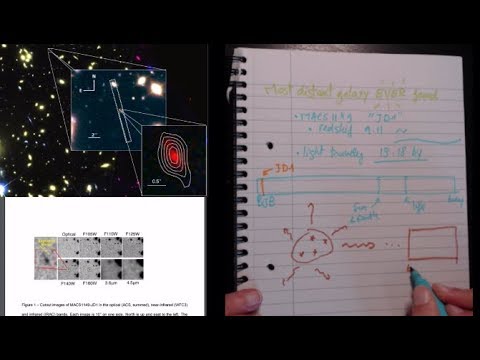 N
E
2"
0.5"
Optical F105W F110W F125W
F140W F160W 3.6μm 4.5μm
Figure 1 – Colour images of MACS1149-JD1 in the optical (ACS, summed), near-infrared (WFC3)
and infrared (IRAC) bands. Each image is 10" on one axis. North is up and east to the left. The
Most distant galaxy EVER found
• MACS 1149 "JD1"
• redshift 9.11
• light travelling
JD-1
Sun & Earth
life
today